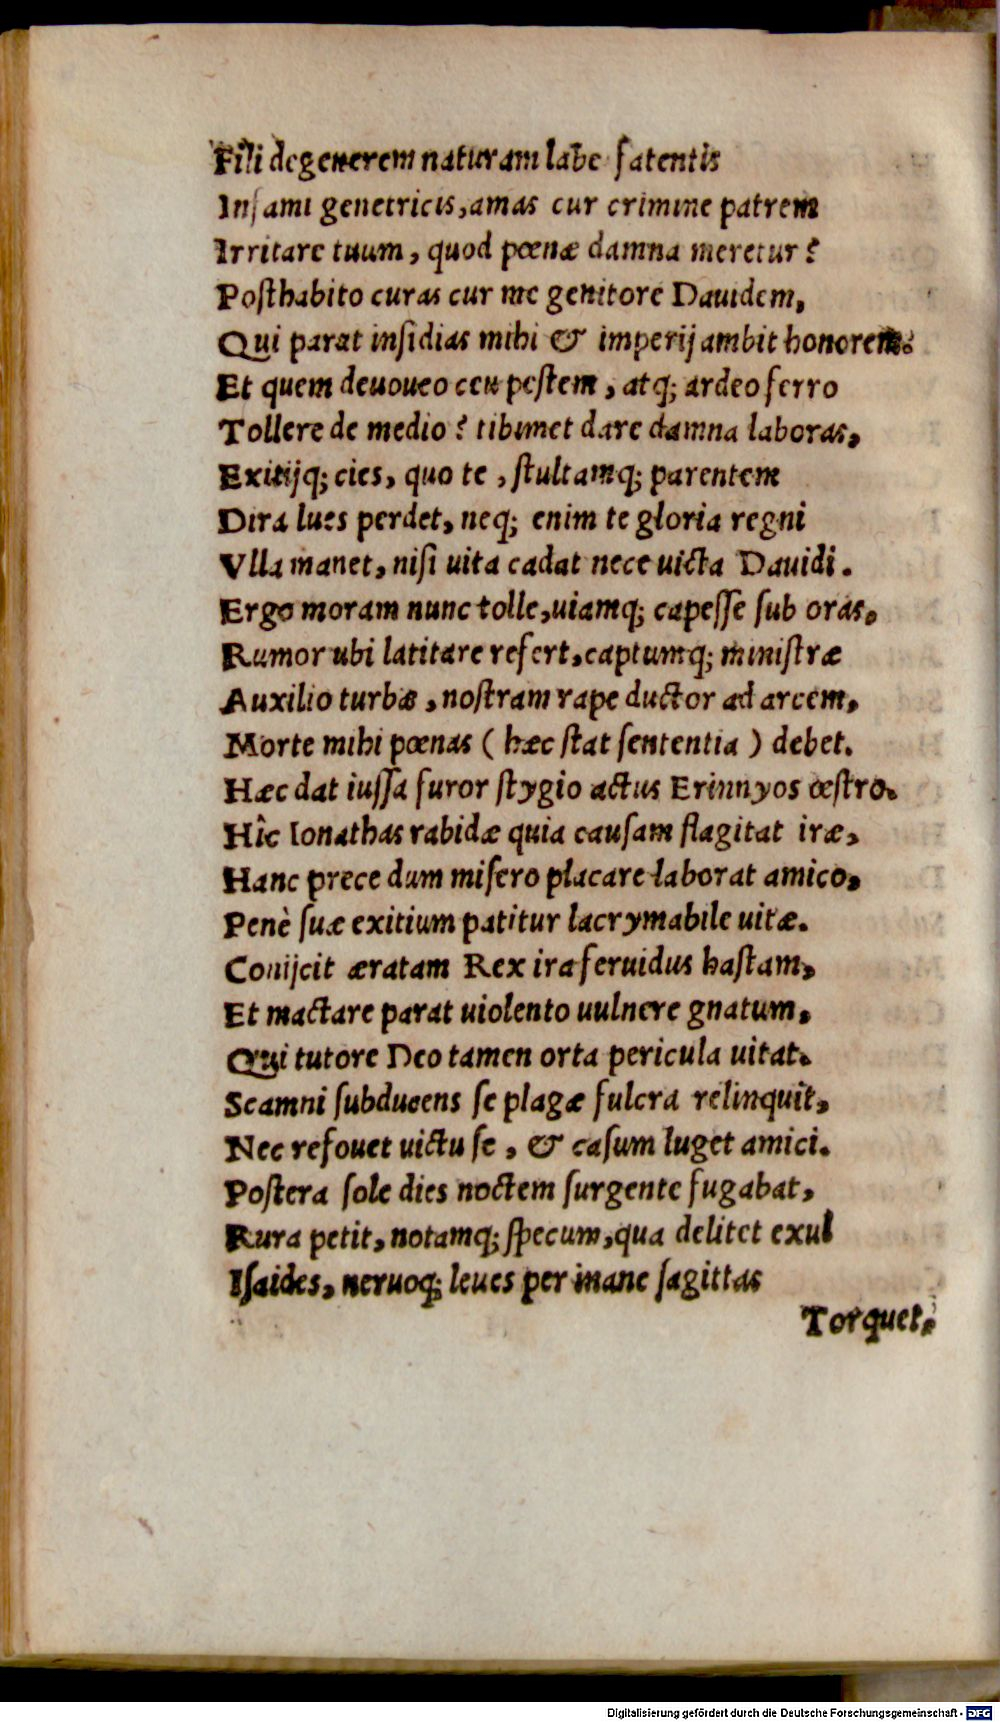 Fili degenerem naturam labe fatentis
Infami genetricis, amas cur crimine patrem
Irritare tuum, quod pœnæ damna meretur?
Posthabito curas cur me genitore Dauidem,
Qui parat insidias mihi & imperij ambit honorem.
Et quem deuoueo ceu pestem, atq; ardeo ferro
Tollere de medio? tibimet dare damna laboras,
Exitijq; cies, quo te, stultamq; parentem
Dira lues perdet, neq; enim te gloria regni
Vlla manet, nisi uita cadat nece uicta Dauidi.
Ergo moram nunc tolle, uiamq; capesse sub oras,
Rumor ubi latitare refert, captumq; ministræ
Auxilio turbæ, nostram rape ductor ad arcem,
Morte mihi pœnas (hæc stat sententia) debet.
Hæc dat iussa furor stygio actus Erinnyos œstro.
Hîc Ionathas rabidæ quia causam flagitat iræ,
Hanc prece dum misero placare laborat amico,
Penè suæ exitium patitur lacrymabile uitæ.
Conijcit æratam Rex ira feruidus hastam,
Et mactare parat uiolento uulnere gnatum,
Qui tutore Deo tamen orta pericula uitat.
Scamni subducens se plagæ fulcra relinquit,
Nec refouet uictu se, & casum luget amici.
Postera sole dies noctem surgente fugabat,
Rura petit, notamq; specum, qua delitet exul
Isaides, neruoq; leues per inane sagittas
Torquet,
Digitalisierung gefördert durch die Deutsche Forschungsgemeinschaft - DFG